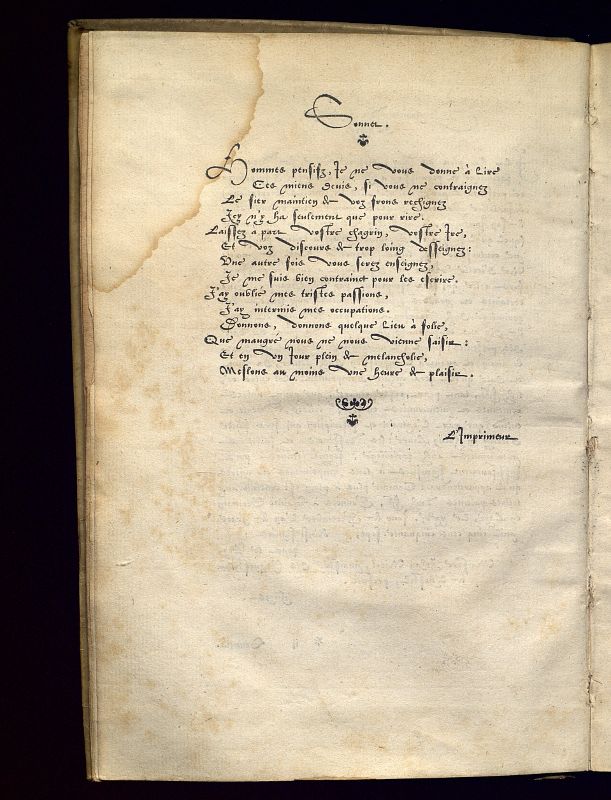 Sonnet.
Hommes pensifz, Je ne vous donne à Lire
Ces miens devis, si vous ne contraignez
Le fier maintien de voz frons rechignez
Icy n'y ha seulement que pour rire.
Laissez à part vostre chagrin, vostre Ire,
Et voz discours de trop loing desseignez:
Une autre fois vous serez enseignez,
Je me suis bien contrainct pour les escrire.
J'ay oublié mes tristes passions,
J'ay intermis mes occupations.
Donnons, donnons quelque Lieu à folie,
Que maugré nous ne nous vienne saisir:
Et en Un Jour plein de melancholie,
Meslons au moins Une heure de plaisir.
L'Imprimeur